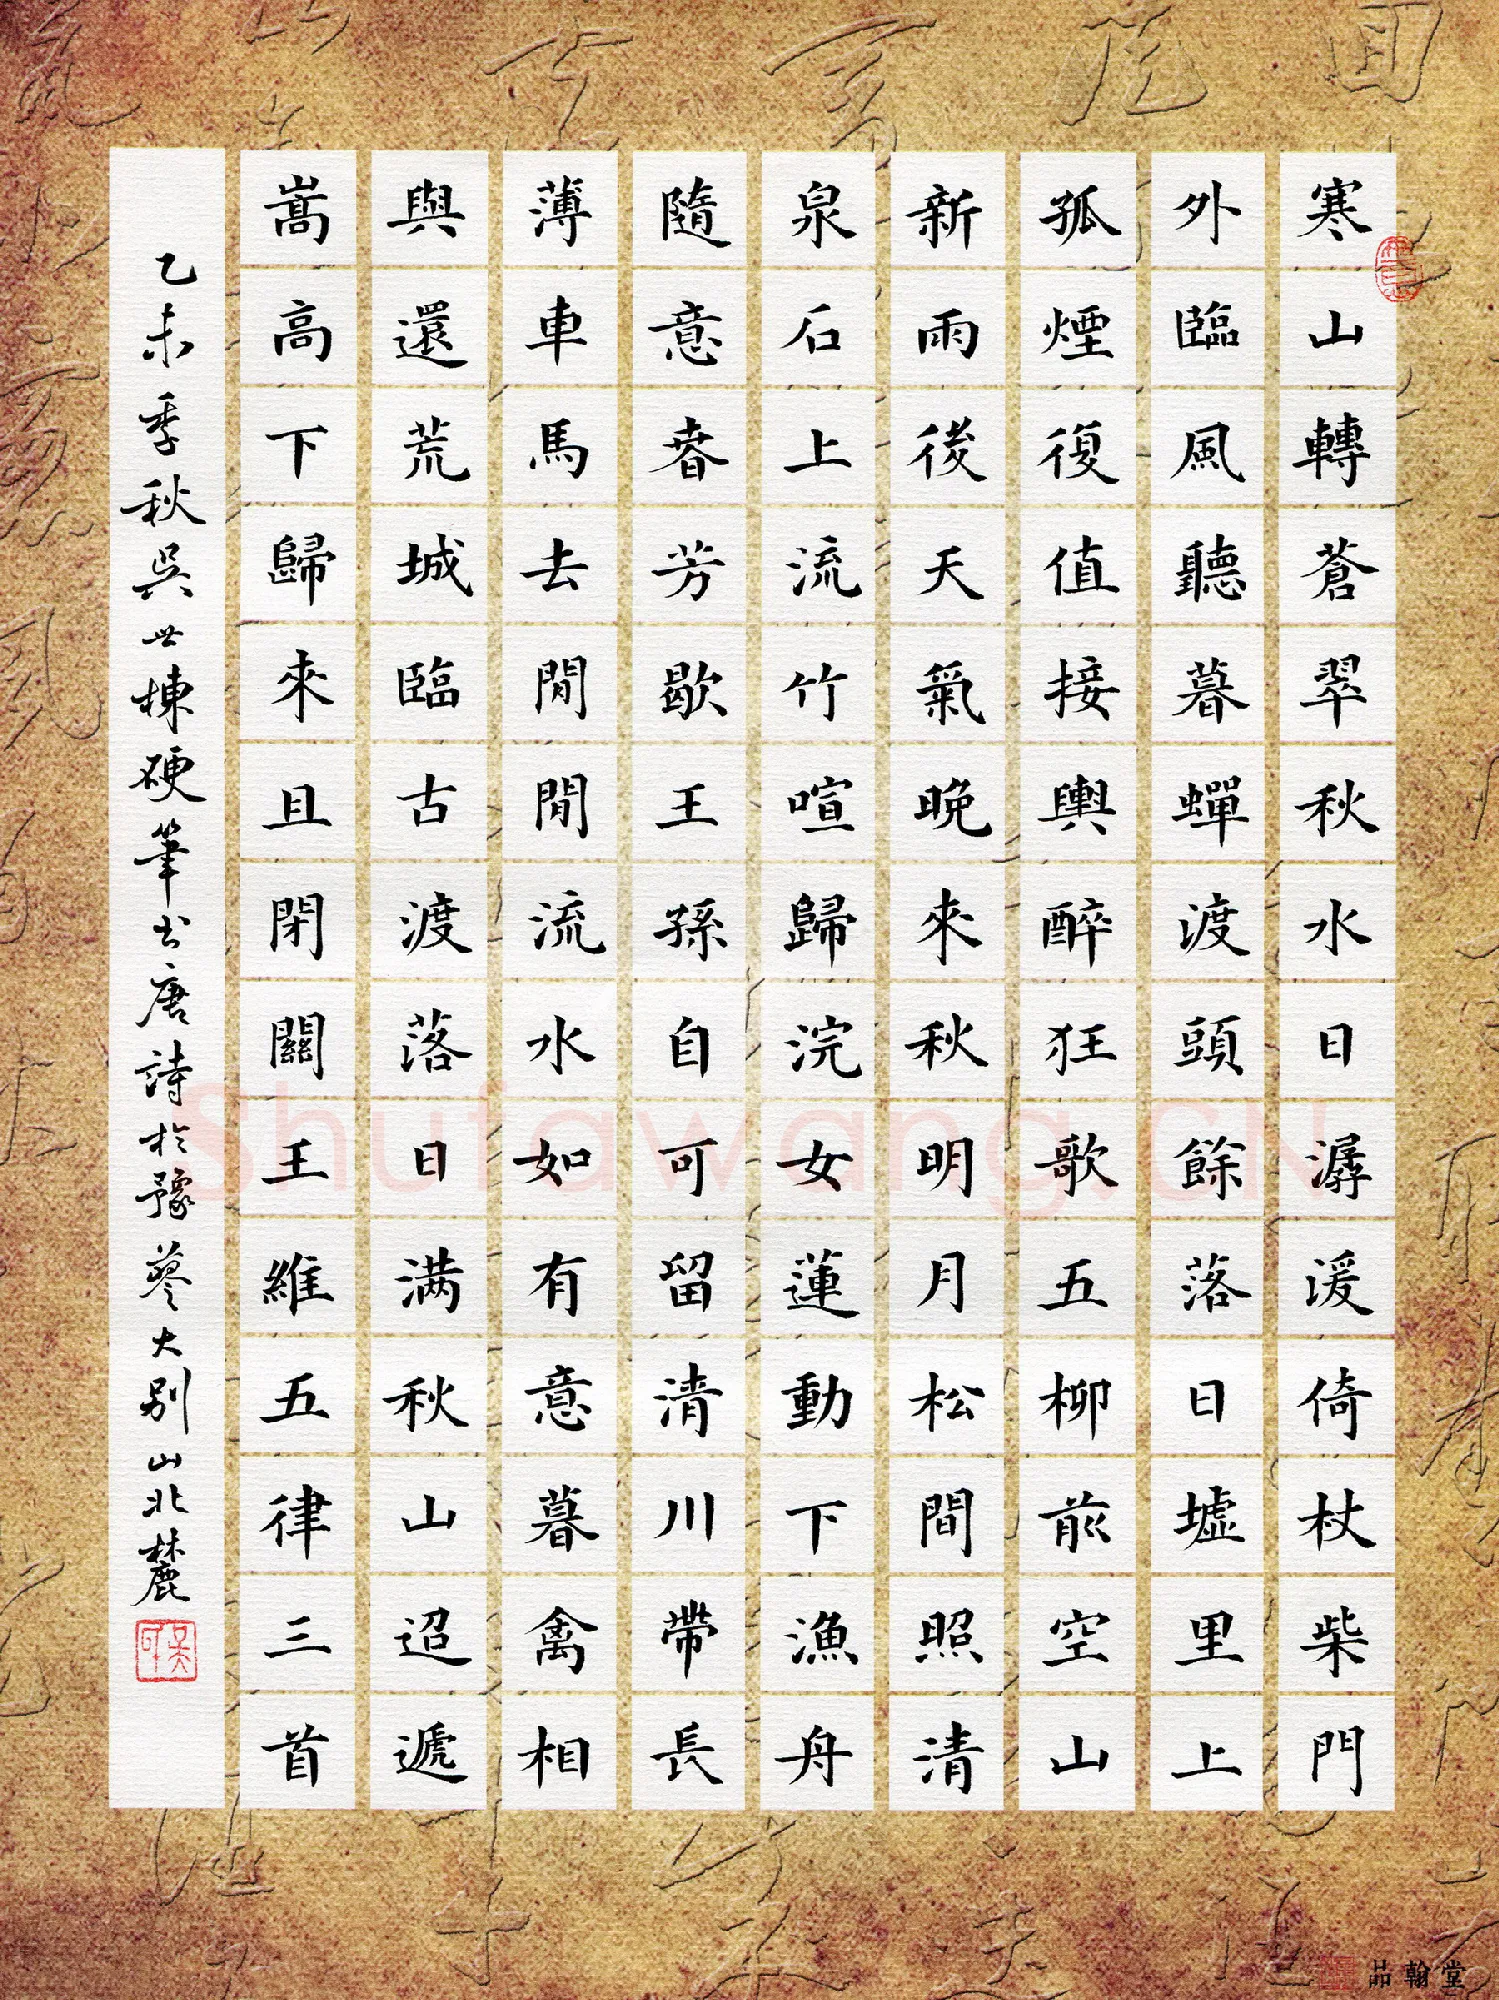 寒山轉蒼翠秋水日潺湲倚杖柴門
外臨風聽暮蟬渡頭餘落日墟里上
孤煙復值接輿醉狂歌五柳前空山
新雨後天氣晚來秋明月松間照清
泉石上流竹喧歸浣女蓮動下漁舟
隨意春芳歇王孫自可留清川帶長
薄車馬去閒閒流水如有意暮禽相
與還荒城臨古渡落日满秋山迢遞
嵩高下歸來且閉關王維五律三首
乙未季秋吳世棟硬筆书唐詩於豫蓼大别山北麓
品翰堂
Shufawang.CN